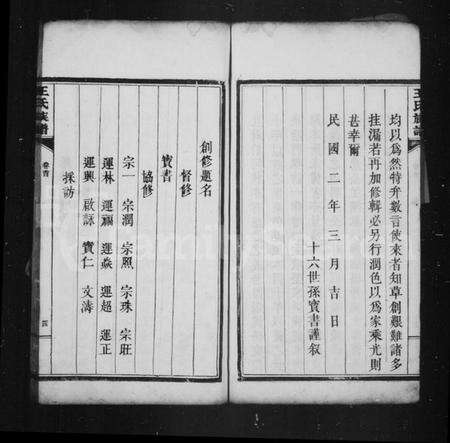 王氏族譜
均以爲然特弁數言使來者知草創艱難諸多
挂漏若再加修輯必另行潤色以爲家乘尤則
甚幸爾
民國二年三月吉日
十六世孫寶書謹叙
創修題名
督修
寶書
協修
宗一 宗潤 宗照 宗珠 宗旺
運林 運福 運焱 運超 運正
運興 啟詠 寶仁 文濤
採訪
王氏族譜
卷首
四